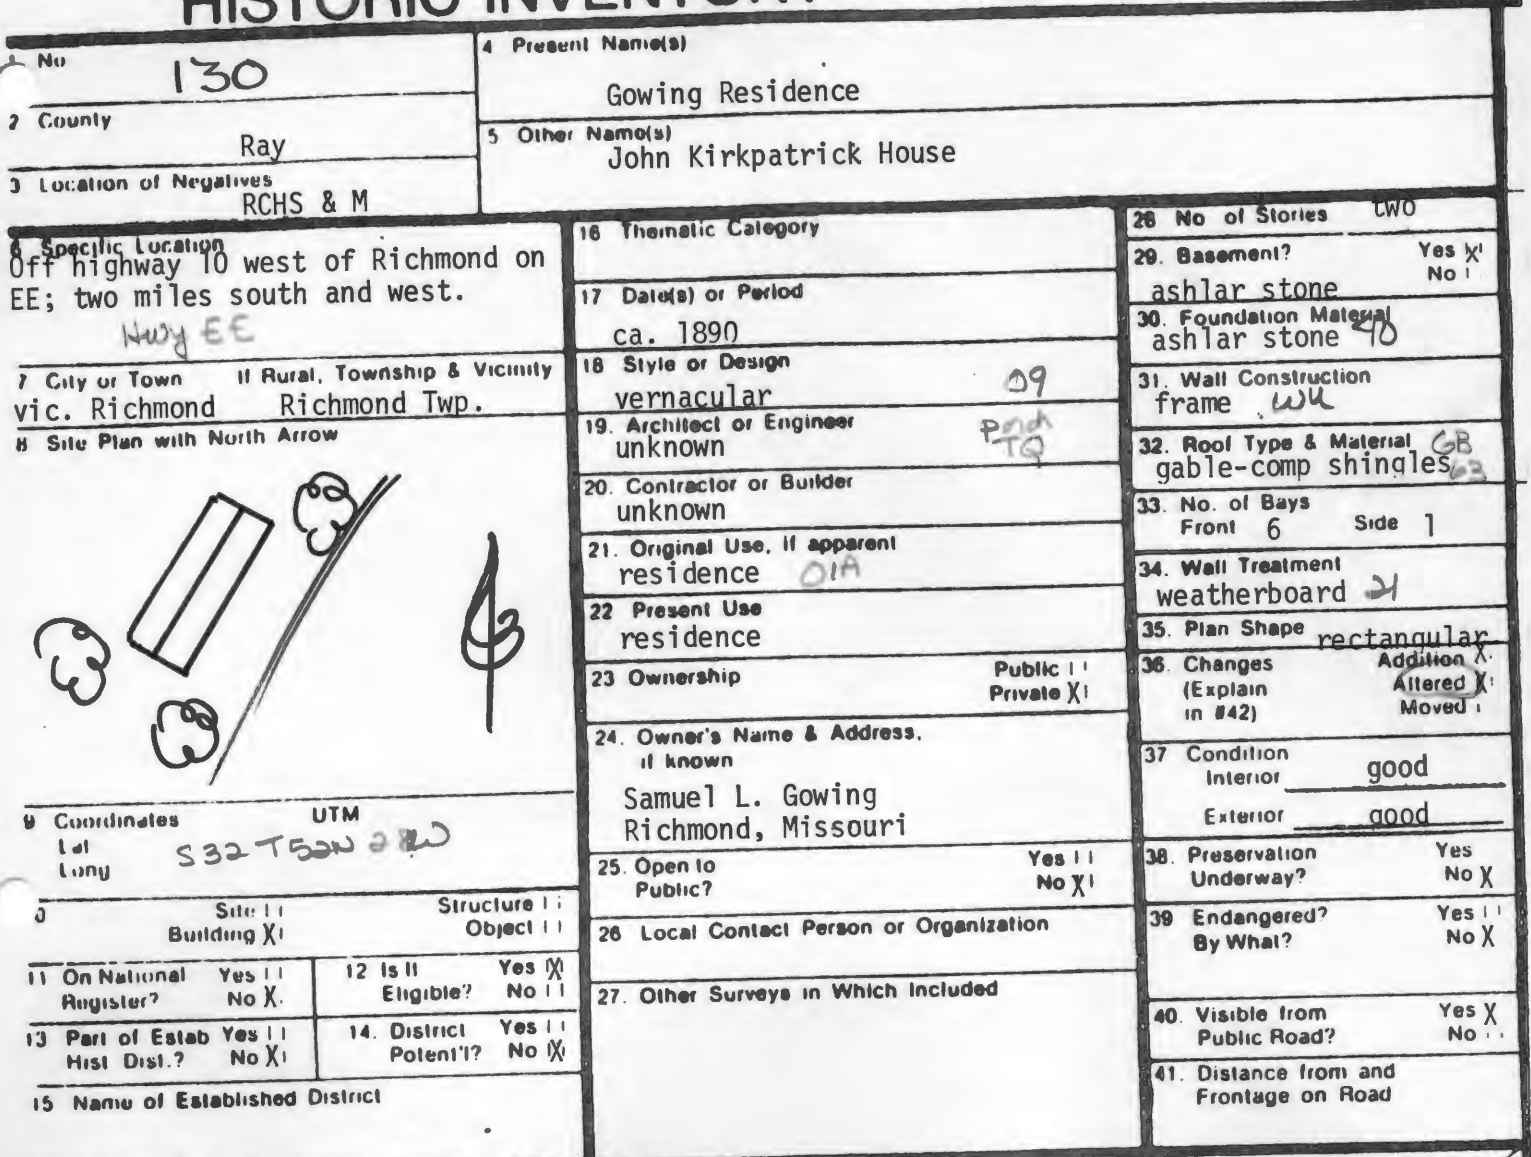 HISTORIC INVENTORY
1 No
130
2 County
Ray
3 Location of Negatives
RCHS & M
4 Present Name(s)
Gowing Residence
5 Other Name(s)
John Kirkpatrick House
6 Specific Location
Off highway 10 west of Richmond on
EE; two miles south and west.
Hwy EE
7 City or Town If Rural, Township & Vicinity
vic. Richmond Richmond Twp.
8 Site Plan with North Arrow
9 Coordinates UTM
Lat
Long
S32 T52N 28W
0 Site
Structure
Building X
Object
11 On National Register? Yes
No X
12 Is It Eligible? Yes X
No
13 Part of Estab Hist Dist.? Yes
No X
14. District Potent'l? Yes
No X
15 Name of Established District
16 Thematic Category
17 Date(s) or Period
ca. 1890
18 Style or Design
vernacular 09
19. Architect or Engineer
unknown
Porch
TQ
20. Contractor or Builder
unknown
21. Original Use, if apparent
residence 01A
22 Present Use
residence
23 Ownership Public
Private X
24. Owner's Name & Address,
if known
Samuel L. Gowing
Richmond, Missouri
25. Open to Yes
Public? No X
26 Local Contact Person or Organization
27. Other Surveys in Which Included
28 No of Stories two
29. Basement? Yes X
No
ashlar stone
30. Foundation Material
ashlar stone 40
31. Wall Construction
frame
32. Roof Type & Material GB
gable-comp shingles 63
33. No. of Bays
Front 6 Side 1
34. Wall Treatment
weatherboard 21
35. Plan Shape rectangular
36. Changes Addition X
(Explain Altered X
in #42) Moved
37 Condition
Interior good
Exterior good
38. Preservation Yes
Underway? No X
39 Endangered? Yes
By What? No X
40. Visible from Yes X
Public Road? No
41. Distance from and
Frontage on Road